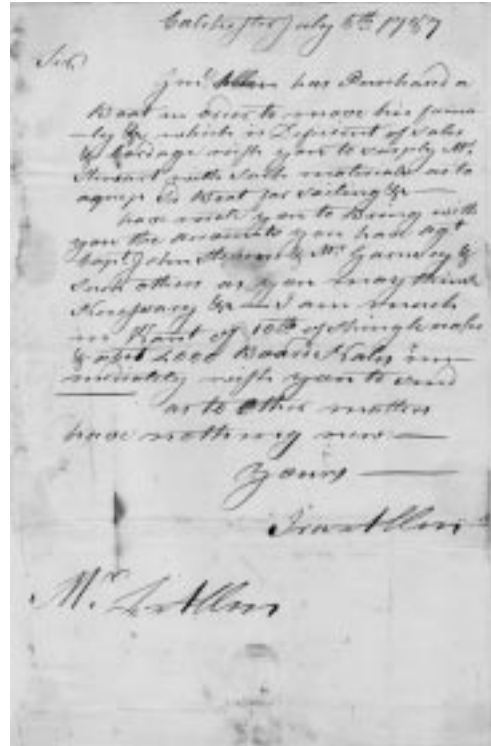 Colchester July 5th 1787
Sir
Jn.o Allen has Purchasd a
Boat in order to move his fami
-ly &c which is Defisent of Sales
& Cordage wish you to suply Mr.
Stewart with Such materials as to
Sd Boat for Sailing &c —
have wish you to Bring with
you the accounts you have agt
Capt John & Mr
Such others as you may think
Necessary &c — I am much
in Want of 10th of Shingle nales
& abt 2000 Board Nales im—
mediately wish you to send
as to other matters
have nothing new —
Yours —
Ira Allen
Mr. L. Allen